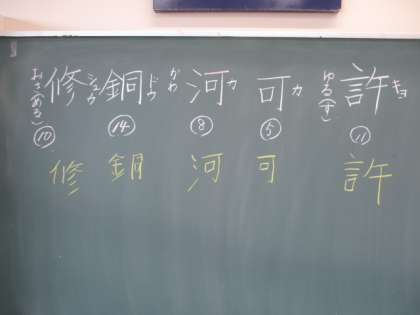 許 キョ ゆる(す) ⑪ 許
可 カ ⑤ 可
河 カ かわ ⑧ 河
銅 ドウ ⑭ 銅
修 シュウ おさ(める) ⑩ 修